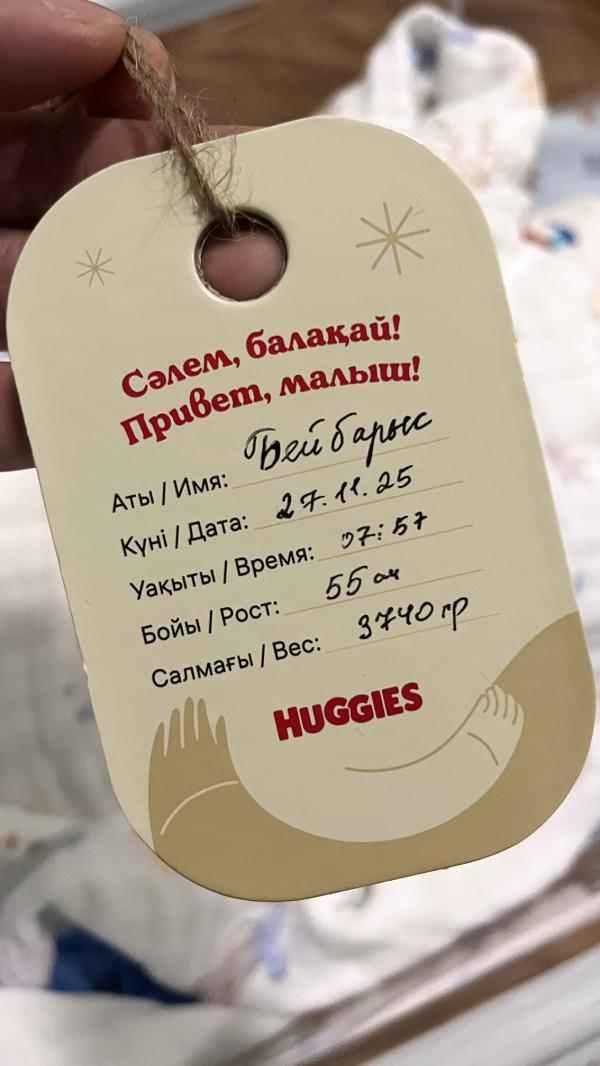 Сәлем, балақай!
Привет, малыш!
Аты / Имя: Бейбарыс
Күні / Дата: 27.11.25
Уақыты / Время: 07:57
Бойы / Рост: 55 см
Салмағы / Вес: 3740 гр
HUGGIES